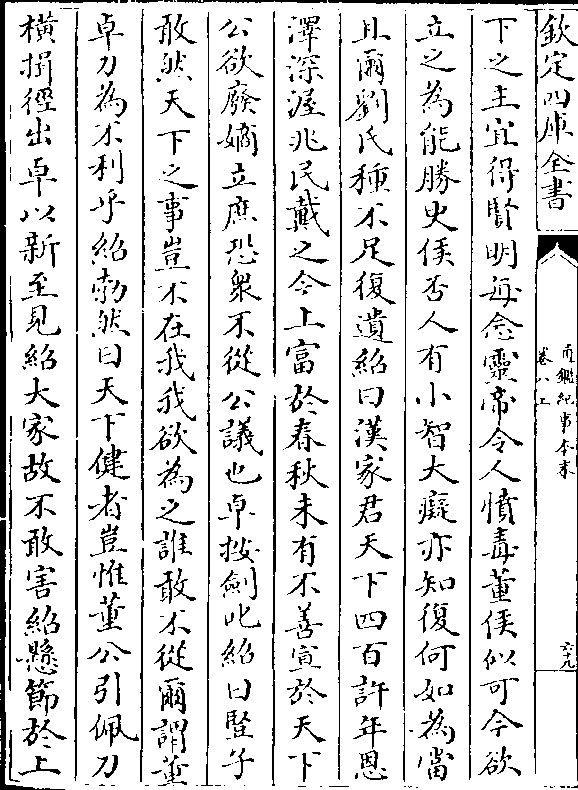 欽定四庫全書
通鑑紀事本末
卷八上
六十九
下之主宜得賢明每念靈帝令人憤毒董侯似可今欲
立之為能勝史侯否人有小智大癡亦知復何如為當
且爾劉氏種不足復遺紹曰漢家君天下四百許年恩
澤深渥兆民戴之今上富於春秋未有不善宣於天下
公欲廢嫡立庶恐衆不從公議也卓按劍叱紹曰豎子
敢然天下之事豈不在我我欲為之誰敢不從爾謂董
卓刀為不利乎紹勃然曰天下健者豈惟董公引佩刀
橫揖徑出卓以新至見紹大家故不敢害紹懸節於上